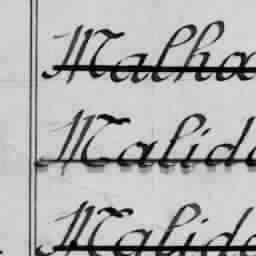 Malha
Malida
Malida